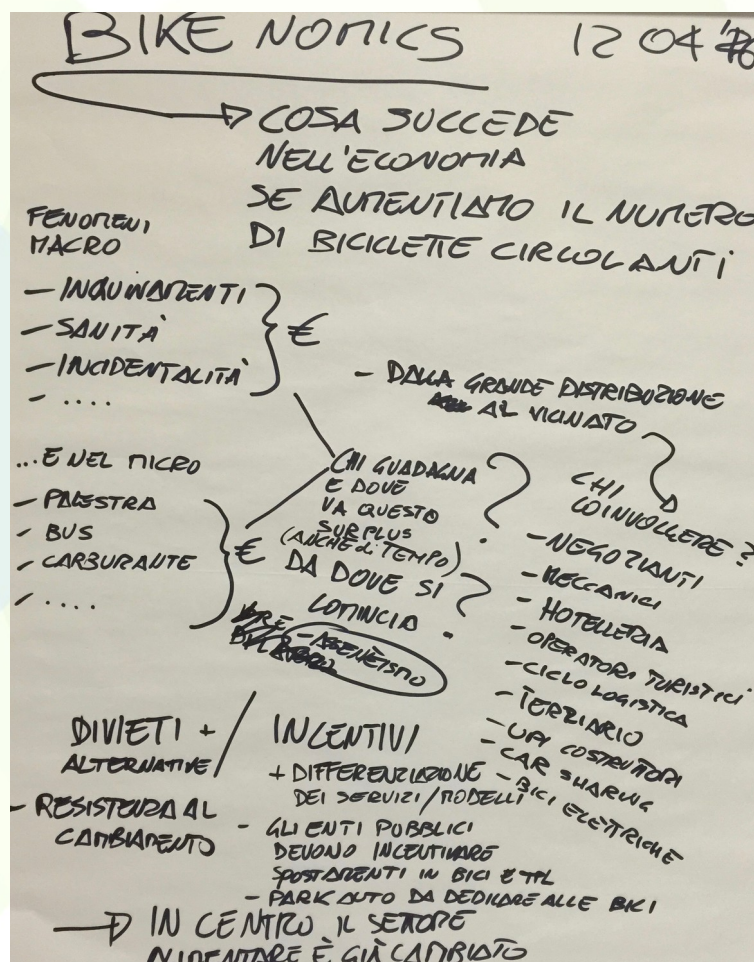 BIKE NOMICS 12 04
COSA SUCCEDE
NELL'ECONOMIA
SE AUMENTIAMO IL NUMERO
DI BICICLETTE CIRCOLANTI
FENOMENI
MACRO
— INQUINAMENTI
— SANITÀ
— INCIDENTALITÀ
— ....
€
— DALLA GRANDE DISTRIBUZIONE
AL VICINATO
...E NEL MICRO
— PALESTRA
— BUS
— CARBURANTE
— ....
€
CHI GUADAGNA
E DOVE
VA QUESTO
SURPLUS
(ANCHE di TEMPO)
?
DA DOVE SI
COMINCIA
?
- ASSENTEISMO
CHI
COINVOLGERE?
- NEGOZIANTI
- MECCANICI
- HOTELLERIA
- OPERATORI TURISTICI
- CICLO LOGISTICA
- TERZIARIO
- UPI COSTRUTTORI
- CAR SHARING
- BICI ELETTRICHE
DIVIETI +
ALTERNATIVE
- RESISTENZA AL
CAMBIAMENTO
/
INCENTIVI
+ DIFFERENZIAZIONE
DEI SERVIZI/MODELLI
- GLI ENTI PUBBLICI
DEVONO INCENTIVARE
SPOSTAMENTI IN BICI E TPL
- PARK AUTO DA DEDICARE ALLE BICI
IN CENTRO IL SETTORE
ALIMENTARE È GIÀ CAMBIATO